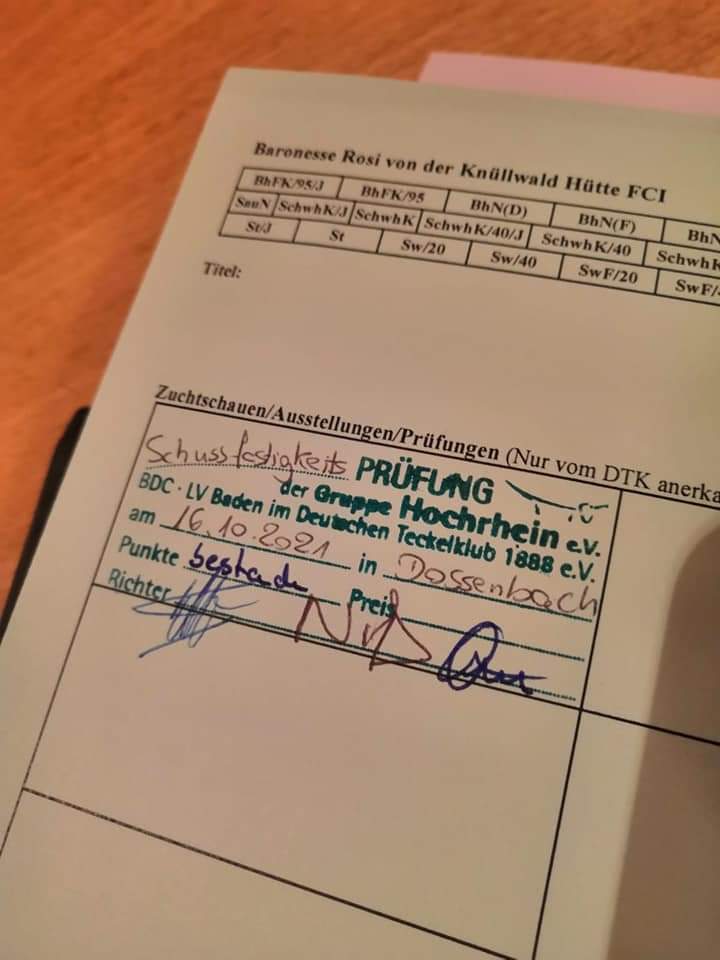 Baronesse Rosi von der Knüllwald Hütte FCI
BhFK/95/J BhFK/95 BhN(D) BhN(F) BhN
SauN SchwhK/J SchwhK SchwhK/40/J SchwhK/40 SchwhK
St/J St Sw/20 Sw/40 SwF/20 SwF/4
Titel:
Zuchtschauen/Ausstellungen/Prüfungen (Nur vom DTK anerka
Schussfestigkeits PRÜFUNG
der Gruppe Hochrhein e.V.
BDC · LV Baden im Deutschen Teckelklub 1888 e.V.
am 16.10.2021 in Dossenbach
Punkte bestanden Preis
Richter